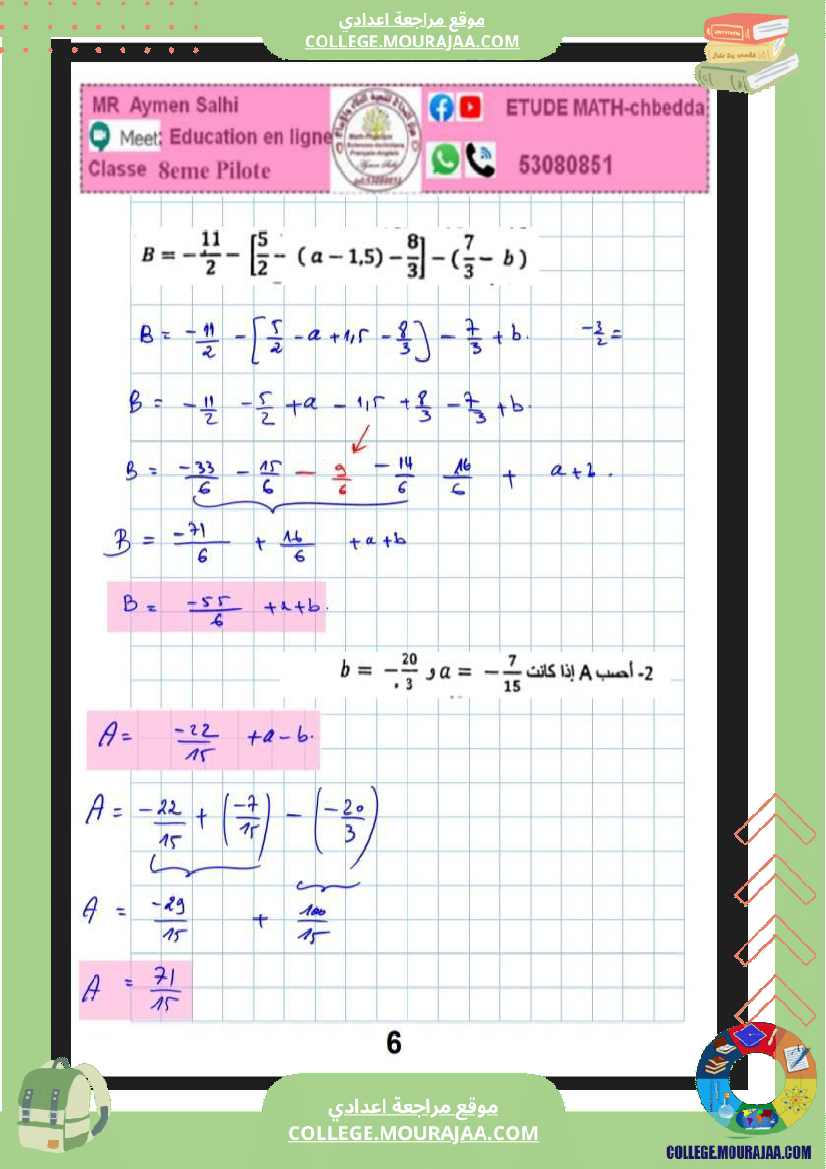 موقع مراجعة اعدادي
COLLEGE.MOURAJAA.COM
MR Aymen Salhi
ETUDE MATH-chbedda
Meet: Education en ligne
Classe 8eme Pilote
53080851
B = -11/2 - [5/2 - (a - 1,5) - 8/3] - (7/3 - b)
B = -11/2 - [5/2 - a + 1,5 - 8/3] - 7/3 + b. -3/2 =
B = -11/2 - 5/2 + a - 1,5 + 8/3 - 7/3 + b.
B = -33/6 - 15/6 - 9/6 - 14/6 16/6 + a + b.
B = -71/6 + 16/6 + a + b
B = -55/6 + a + b.
2- أحسب A إذا كانت a = -7/15 و b = -20/3
A = -22/15 + a - b.
A = -22/15 + (-7/15) - (-20/3)
A = -29/15 + 100/15
A = 71/15
6
موقع مراجعة اعدادي
COLLEGE.MOURAJAA.COM
COLLEGE.MOURAJAA.COM